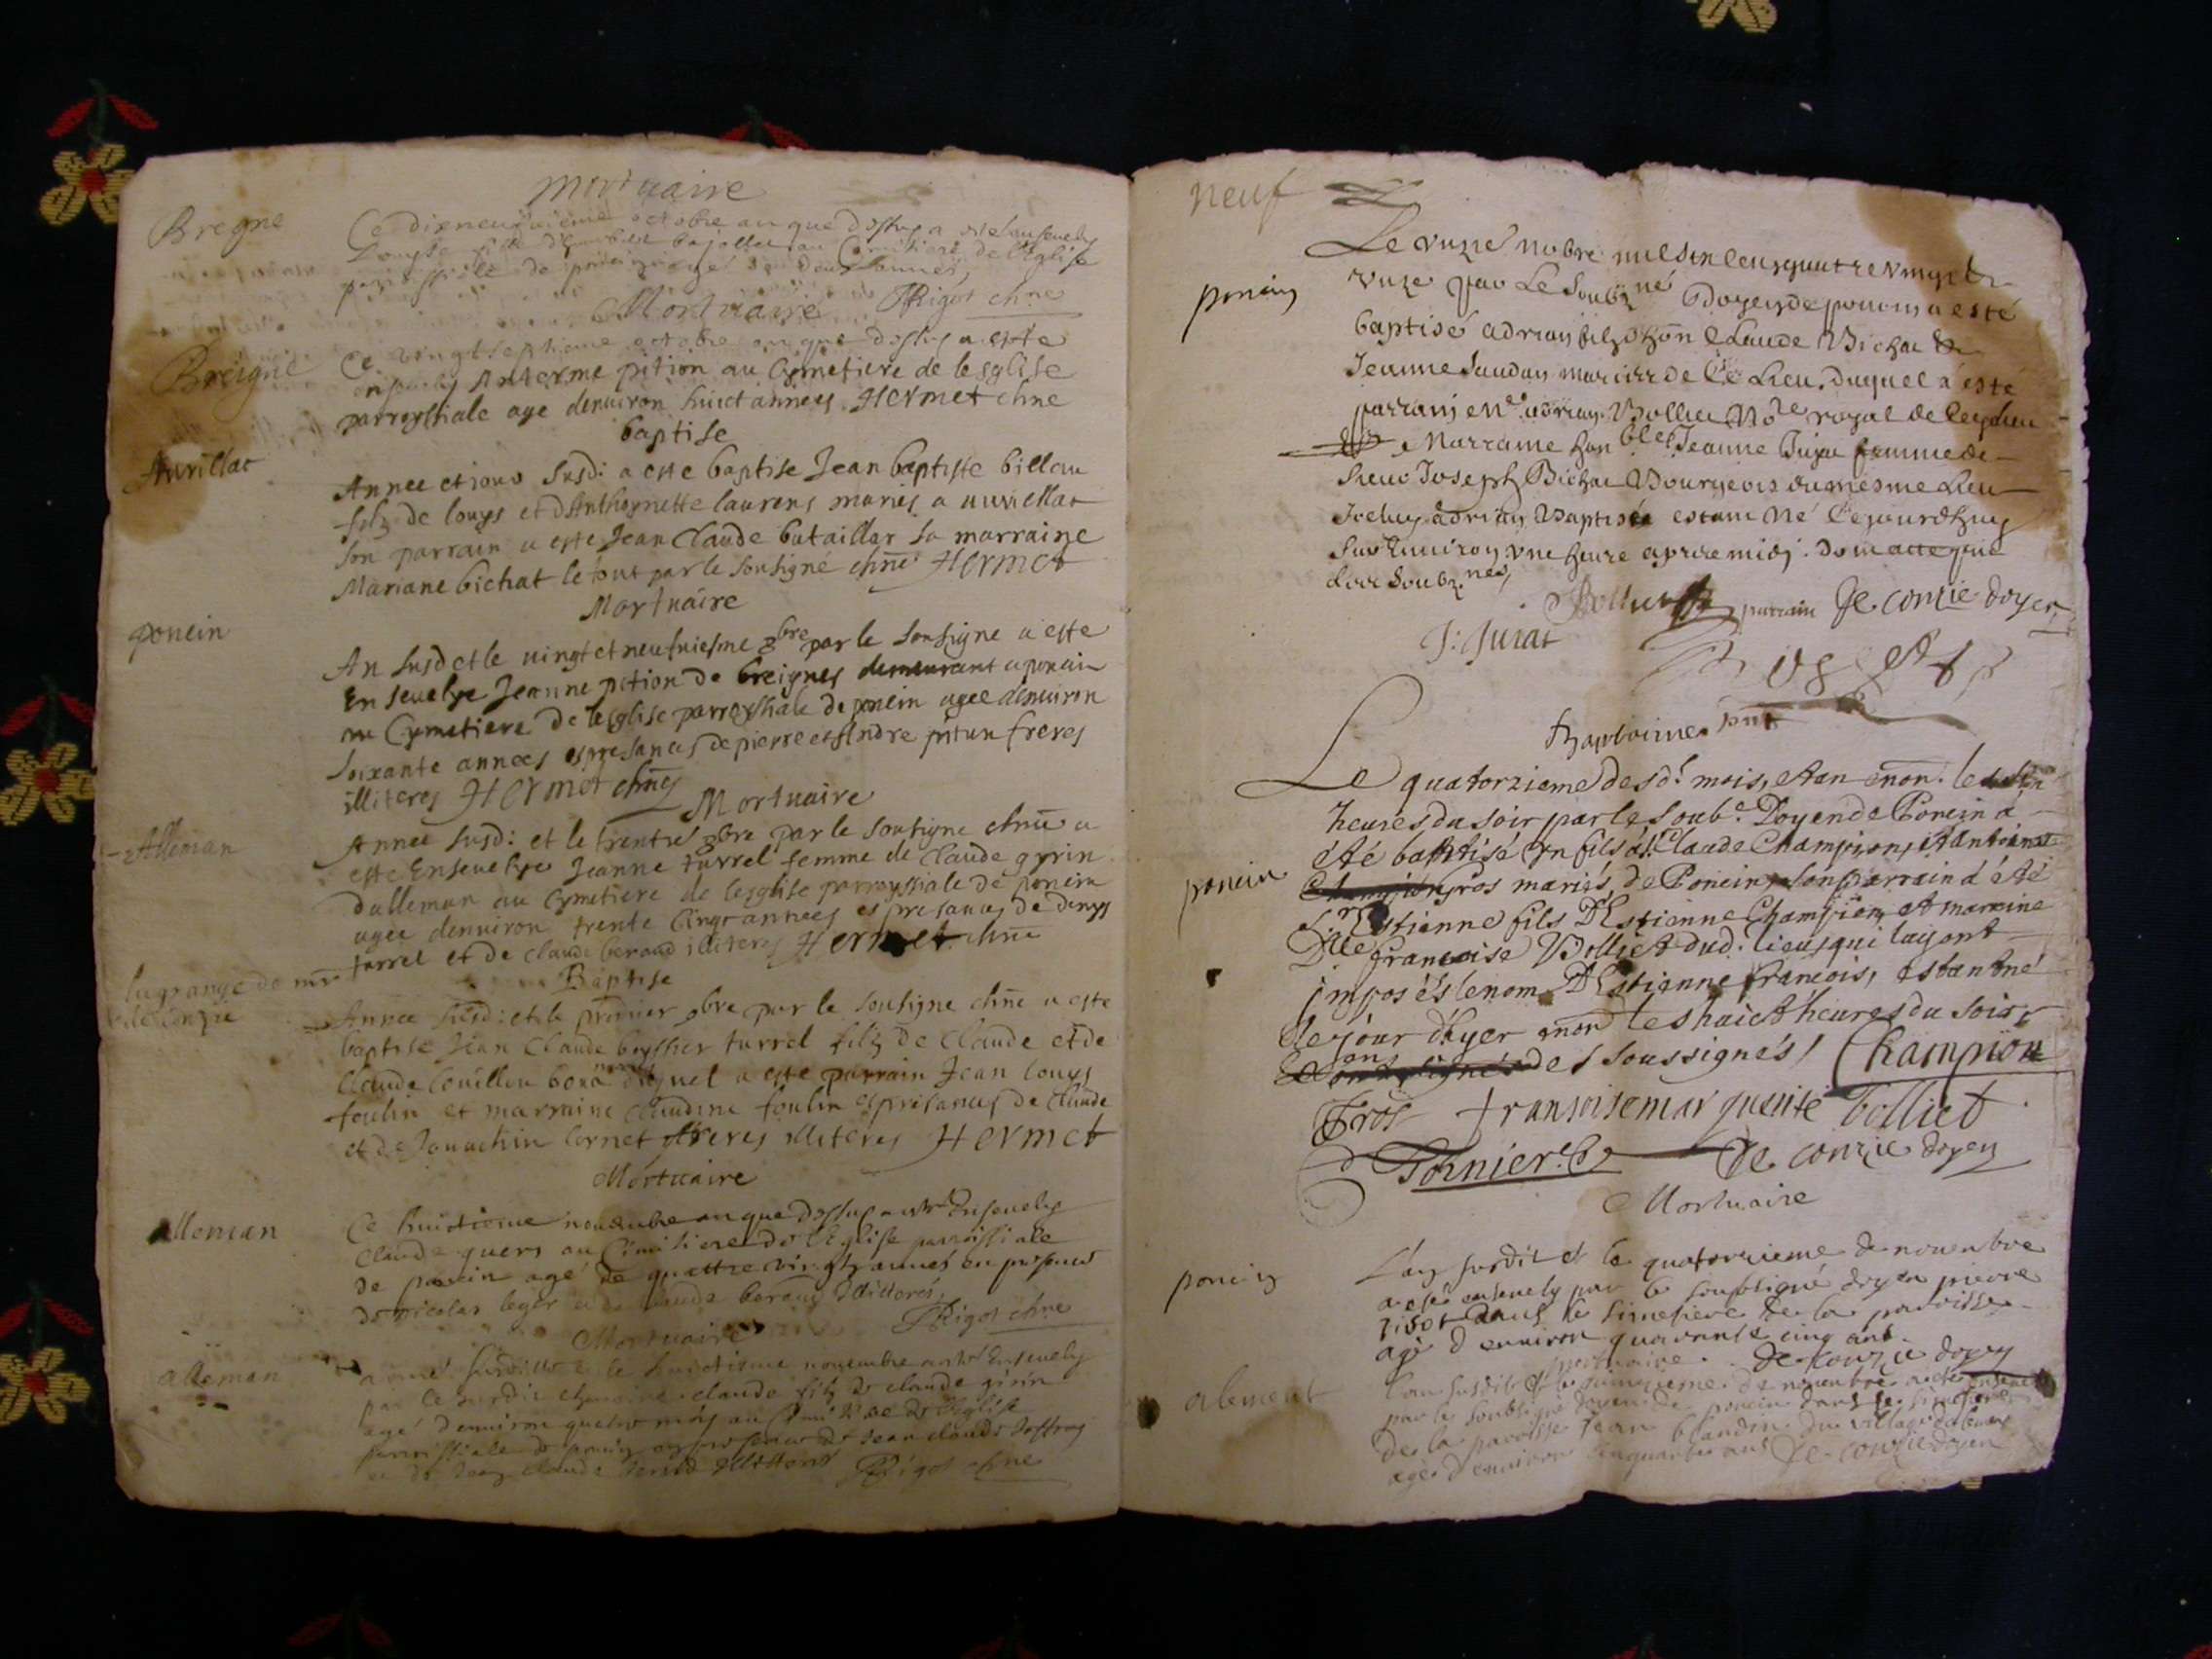 mortuaire
Bregne
Ce dixneufuieme octobre an que dessus a esté ensevely
Cimistiere de l'Eglise
Rigot chne
Mortuaire
Breigne
Ce vingtseptieme octobre an que dessus a este
ensevely Anterme pition au Cymetiere de lesglise
parroyssiale age denuiron huict annees Hermet chne
baptise
Auvillat
Annee et jour susd: a este baptise Jean baptiste billou
filz de louys et dAnthoynette laurens maries a auvillat
son parrain a este Jean Claude bataillar sa marraine
Mariane bichat le tout par le sousigné chne Hermet
Mortuaire
ponein
An susd et le vingt et neufuiesme 8bre par le sousigne a este
Ensevelye Jeanne pition de breignes demeurant a ponein
au Cymetiere de lesglise parroyssiale de ponein agee denuiron
soixante annees es presances de pierre et Andre pition freres
illiteres Hermet chne
Mortuaire
Alleman
Annee susd: et le trente 8bre par le sousigne chne a
este Ensevelye Jeanne turrel femme de Claude gyrin
dalleman au Cymetiere de lesglise parroyssiale de ponein
agee denuiron trente cinq annees es presances de denys
turrel et de Claude beraud illiteres Hermet chne
Baptise
la grange de mr
de Conzie
Annee susd: et le premier 9bre par le sousigne chne a este
baptise Jean Claude turrel filz de Claude et de
Claude duquel a este parrain Jean louys
foulin et marraine Claudine foulin es presances de Claude
et de Jouachin Cornet freres illiteres Hermet
Mortuaire
alleman
Ce huictieme novembre an que dessus a esté Ensevely
Claude guers au Cimitiere de l'Eglise parroissiale
de poncin agé de quattre vingt années en presence
de nicolas leger et de Claude beraud Illitterés
Rigot chne
Mortuaire
alleman
année susditte et le huictieme novembre a esté Ensevely
par le susdit chanoine claude filz de claude girin
agé d'enuiron quatre mois au Cimitiere de l'Eglise
parroissiale de poncin en presence de Jean claude
et de Jean claude Illitterés Rigot chne
neuf
poncin
Le unze nobre mil six cens quatre vingt &
unze par Le soubzné Doyen de poncin a esté
baptisé adrian filz d'hon Claude Bichat &
Jeanne Saudan mariez de Ce Lieu, duquel a esté
parrain Me adrian Bolliet Nore royal de
Marraine honble Jeanne Jujat femme de
sieur Joseph Bichat Bourgeois du mesme Lieu
Iceluy adrian Baptisé estant Né Cejourdhuy
sur Enuiron une heure apres midy. dont acte que
dess soubznes
Bolliet parrain De conzie doyen
J: Jurat
Le quatorzieme desd. mois, et an enon. les
heures du soir par le soub.e Doyen de Poncin á
été baptisé un fils á s.r Claude Champion, et Antoinette
Gros mariés, de Poncin, son parrain á été
s.r Estienne fils D'Estienne Champion, et marraine
Dlle francoise Bolliet dud. lieu, qui luy ont
imposés le nom D'Estienne francois, estant né
le jour d'hyer enon les huict heures du soir
des soussignés / Champion
Gros fransoise marguerite bolliet
Fornier De conzie doyen
Mortuaire
poncin
l'an susdit et le quatorzieme de novembre
a esté ensevely par le soubsigné doyen pierre
dans le simetiere de la paroisse
agé d'enuiron quarante cinq ans.
De Conzie doyen
mortuaire
alement
l'an susdit et le quinzieme de novembre a eté ensevely
par le soubsigné doyen de poncin dans le simetiere
de la paroisse Jean blandin du village
agé d'enuiron cinquante ans De conzie doyen